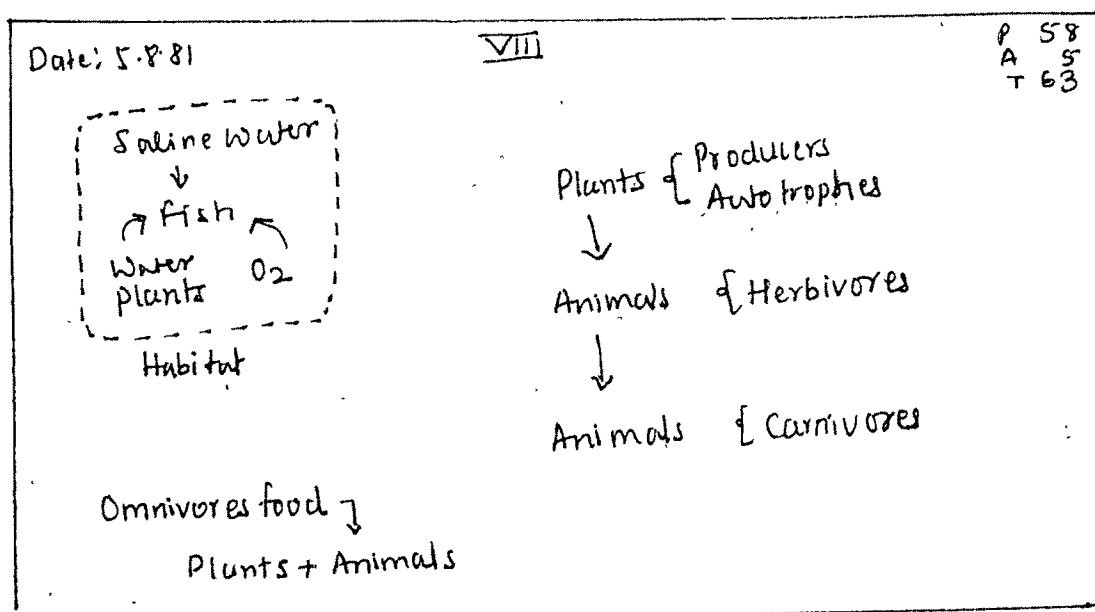 Date: 5.8.81
VIII
P 58
A 5
T 63
Saline water
↓
fish
Water
plants
O2
Habitat
Plants { Producers
Autotrophes
↓
Animals { Herbivores
↓
Animals { Carnivores
Omnivores food
Plants + Animals